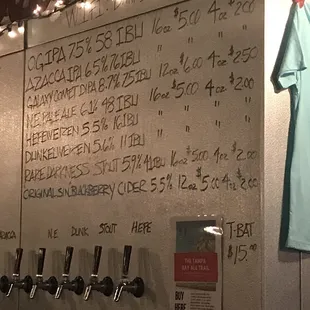 OG IPA 7.5% 58 IBU 16oz $5.00 4oz $2.00
AZACCA IPA 6.5% 76 IBU " " " "
GALAXY COMET DIPA 8.7% 75 IBU 12oz $6.00 4oz $2.50
NE PALE ALE 6.1% 48 IBU 16oz $5.00 4oz $2.00
HEFEWEIZEN 5.5% 16 IBU " " " "
DUNKELWEIZEN 5.6% 11 IBU " " " "
RARE DARKNESS STOUT 5.9% 41 IBU 16oz $5.00 4oz $2.00
ORIGINAL SIN BLACKBERRY CIDER 5.5% 12oz $5.00 4oz $2.00
NE DUNK STOUT HEFE
T-BAT
$15.00
THE TAMPA BAY
ALE TRAIL
BUY
HERE